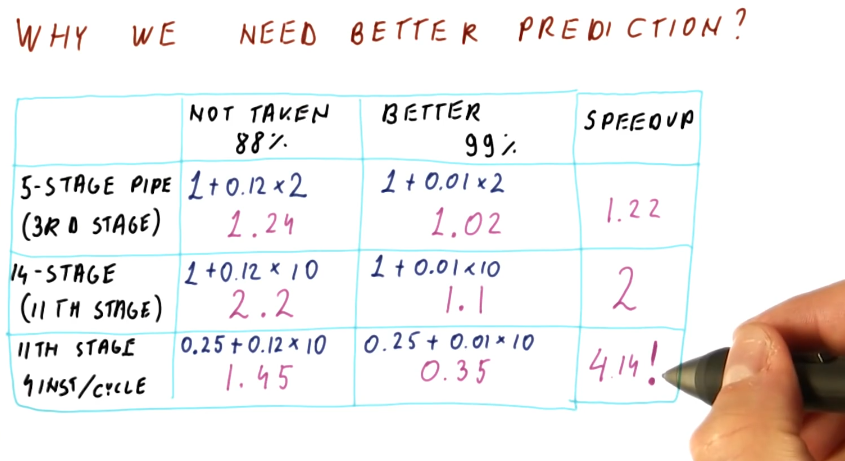 WHY WE NEED BETTER PREDICTION?
NOT TAKEN 88%
BETTER 99%
SPEEDUP
5-STAGE PIPE (3RD STAGE)
1+0.12×2
1.24
1+0.01×2
1.02
1.22
14-STAGE (11TH STAGE)
1+0.12×10
2.2
1+0.01×10
1.1
2
11TH STAGE 4INST/CYCLE
0.25+0.12×10
1.45
0.25+0.01×10
0.35
4.14!